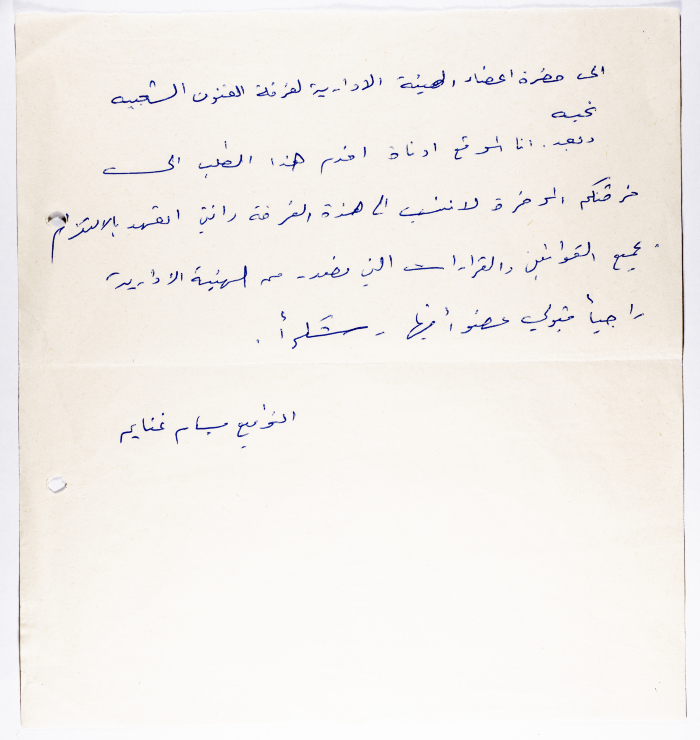 الى حضرة اعضاء الهيئة الادارية لفرقة الفنون الشعبيه
تحيه
وبعد. انا الموقع ادناة اقدم هذا الطلب الى
فرقتكم الموقرة لانتسب الى هذة الفرقة وانني اتعهد بالالتزام
بجميع القوانين والقرارات التي تصدر من الهيئة الادارية
راجياً قبولي عضواً فيها وشكراً.
التواقيع بسام غنايم